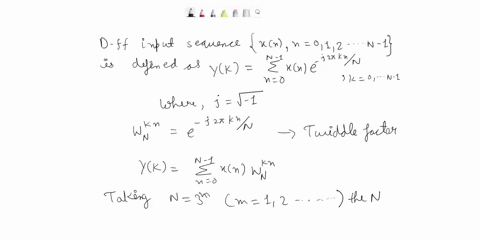 D-ff input sequence {x(n), n=0,1,2 ..... N-1}
is defined as Y(K) = \sum_{n=0}^{N-1} x(n) e^{-j2πkn/N} , k=0,...N-1
where, j = √-1
W_N^{kn} = e^{-j2πkn/N} → Twiddle factor
Y(K) = \sum_{n=0}^{N-1} x(n) W_N^{kn}
Taking N=3^m (m=1,2 ........) the N